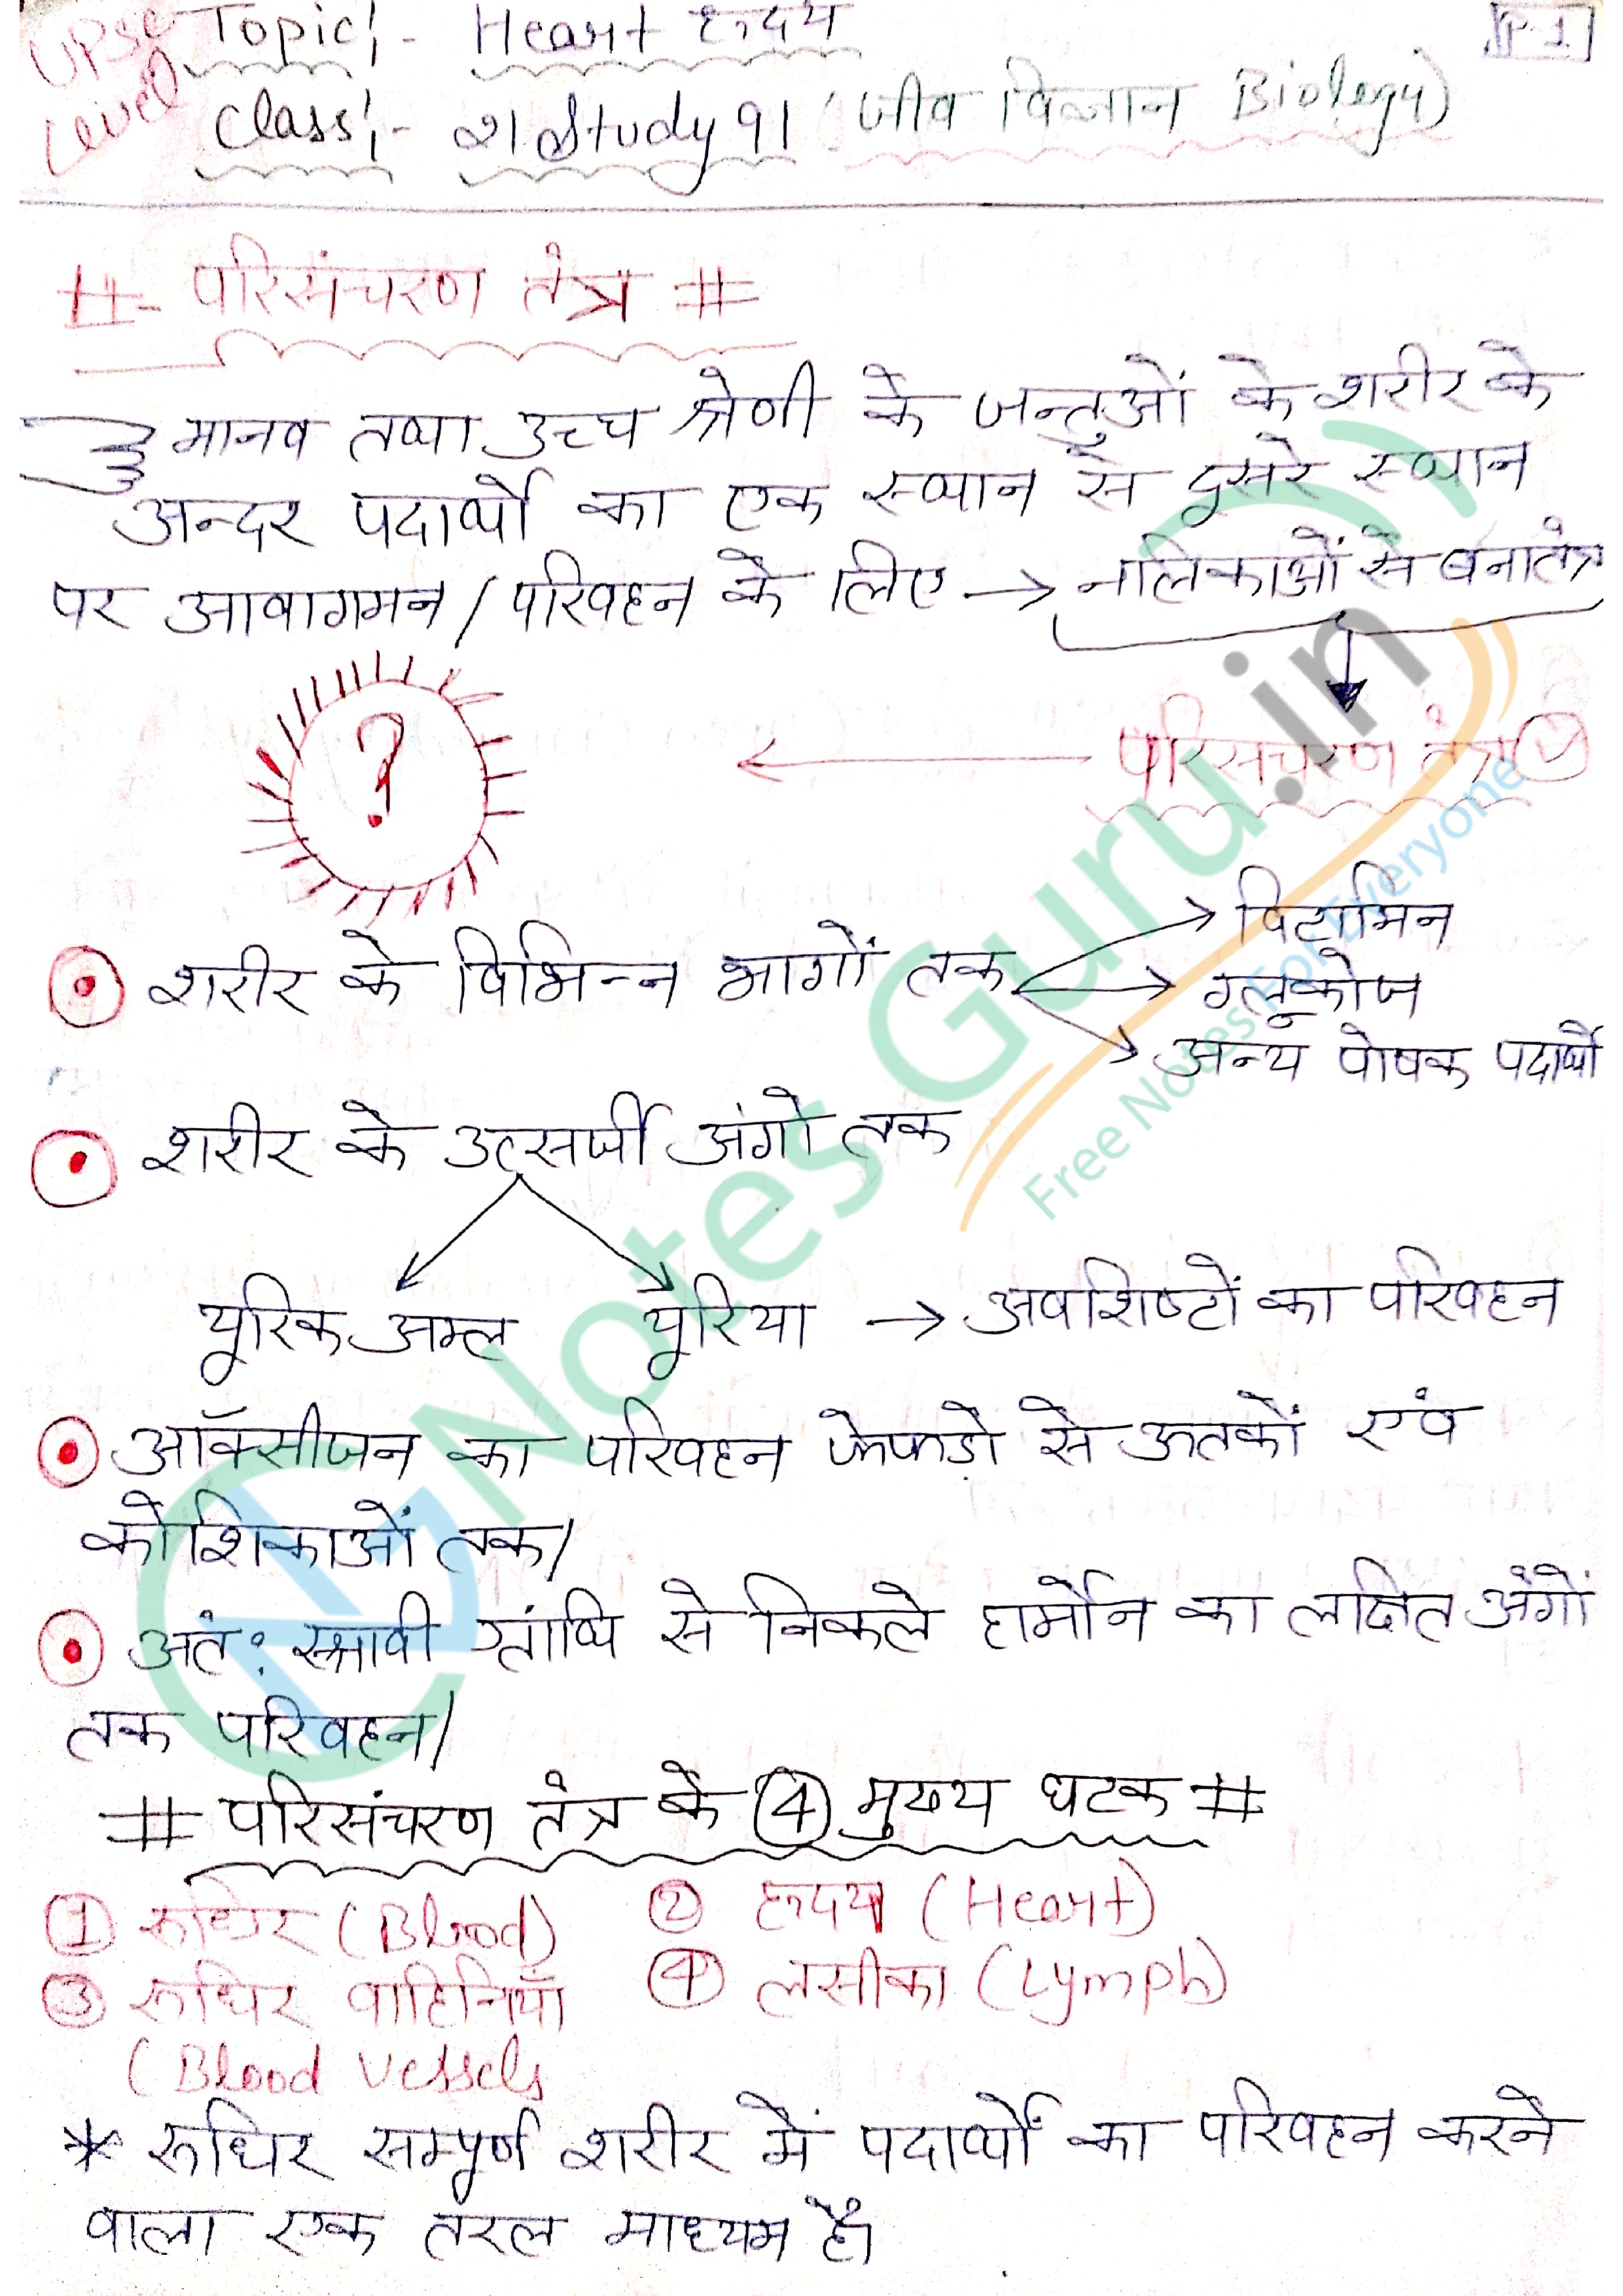 UPSC Level
Topic:- Heart हृदय
P-1
Class:- Study 91 (जीव विज्ञान Biology)
# परिसंचरण तंत्र #
मानव तथा उच्च श्रेणी के जन्तुओं के शरीर के
अन्दर पदार्थो का एक स्थान से दूसरे स्थान
पर आवागमन / परिवहन के लिए → नलिकाओं से बना तंत्र
?
← परिसंचरण तंत्र
→ विटामिन
शरीर के विभिन्न भागों तक → ग्लूकोज
→ अन्य पोषक पदार्थो
शरीर के उत्सर्जी अंगो तक
यूरिक अम्ल यूरिया → अवशिष्टों का परिवहन
ऑक्सीजन का परिवहन फेफड़ो से ऊतकों एंव
कोशिकाओं तक/
अतं: स्त्रावी ग्रांथि से निकले हार्मोन का लक्षित अंगों
तक परिवहन/
# परिसंचरण तंत्र के 4 मुख्य घटक #
1 रूधिर (Blood) 2 हृदय (Heart)
3 रूधिर वाहिनियाँ 4 लसीका (Lymph)
(Blood Vessels
* रूधिर सम्पूर्ण शरीर में पदार्थों का परिवहन करने
वाला एक तरल माध्यम है।
Notes Guru.in
Free Notes For Everyone